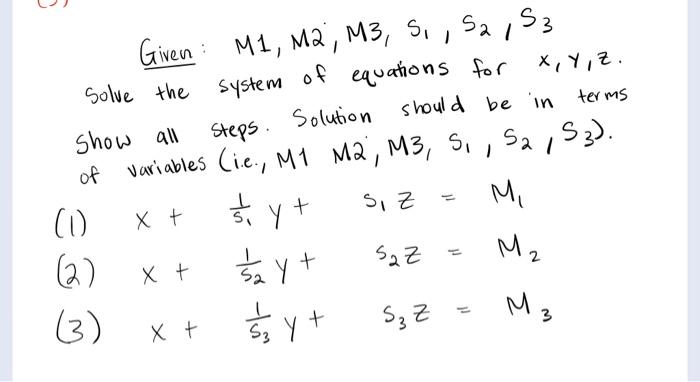 Given: M1, M2, M3, S1, S2, S3
Solve the system of equations for x, y, z.
Show all steps. Solution should be in terms
of variables (i.e., M1 M2, M3, S1, S2, S3).
(1) x + 1/S1 y + S1 z = M1
(2) x + 1/S2 y + S2 z = M2
(3) x + 1/S3 y + S3 z = M3